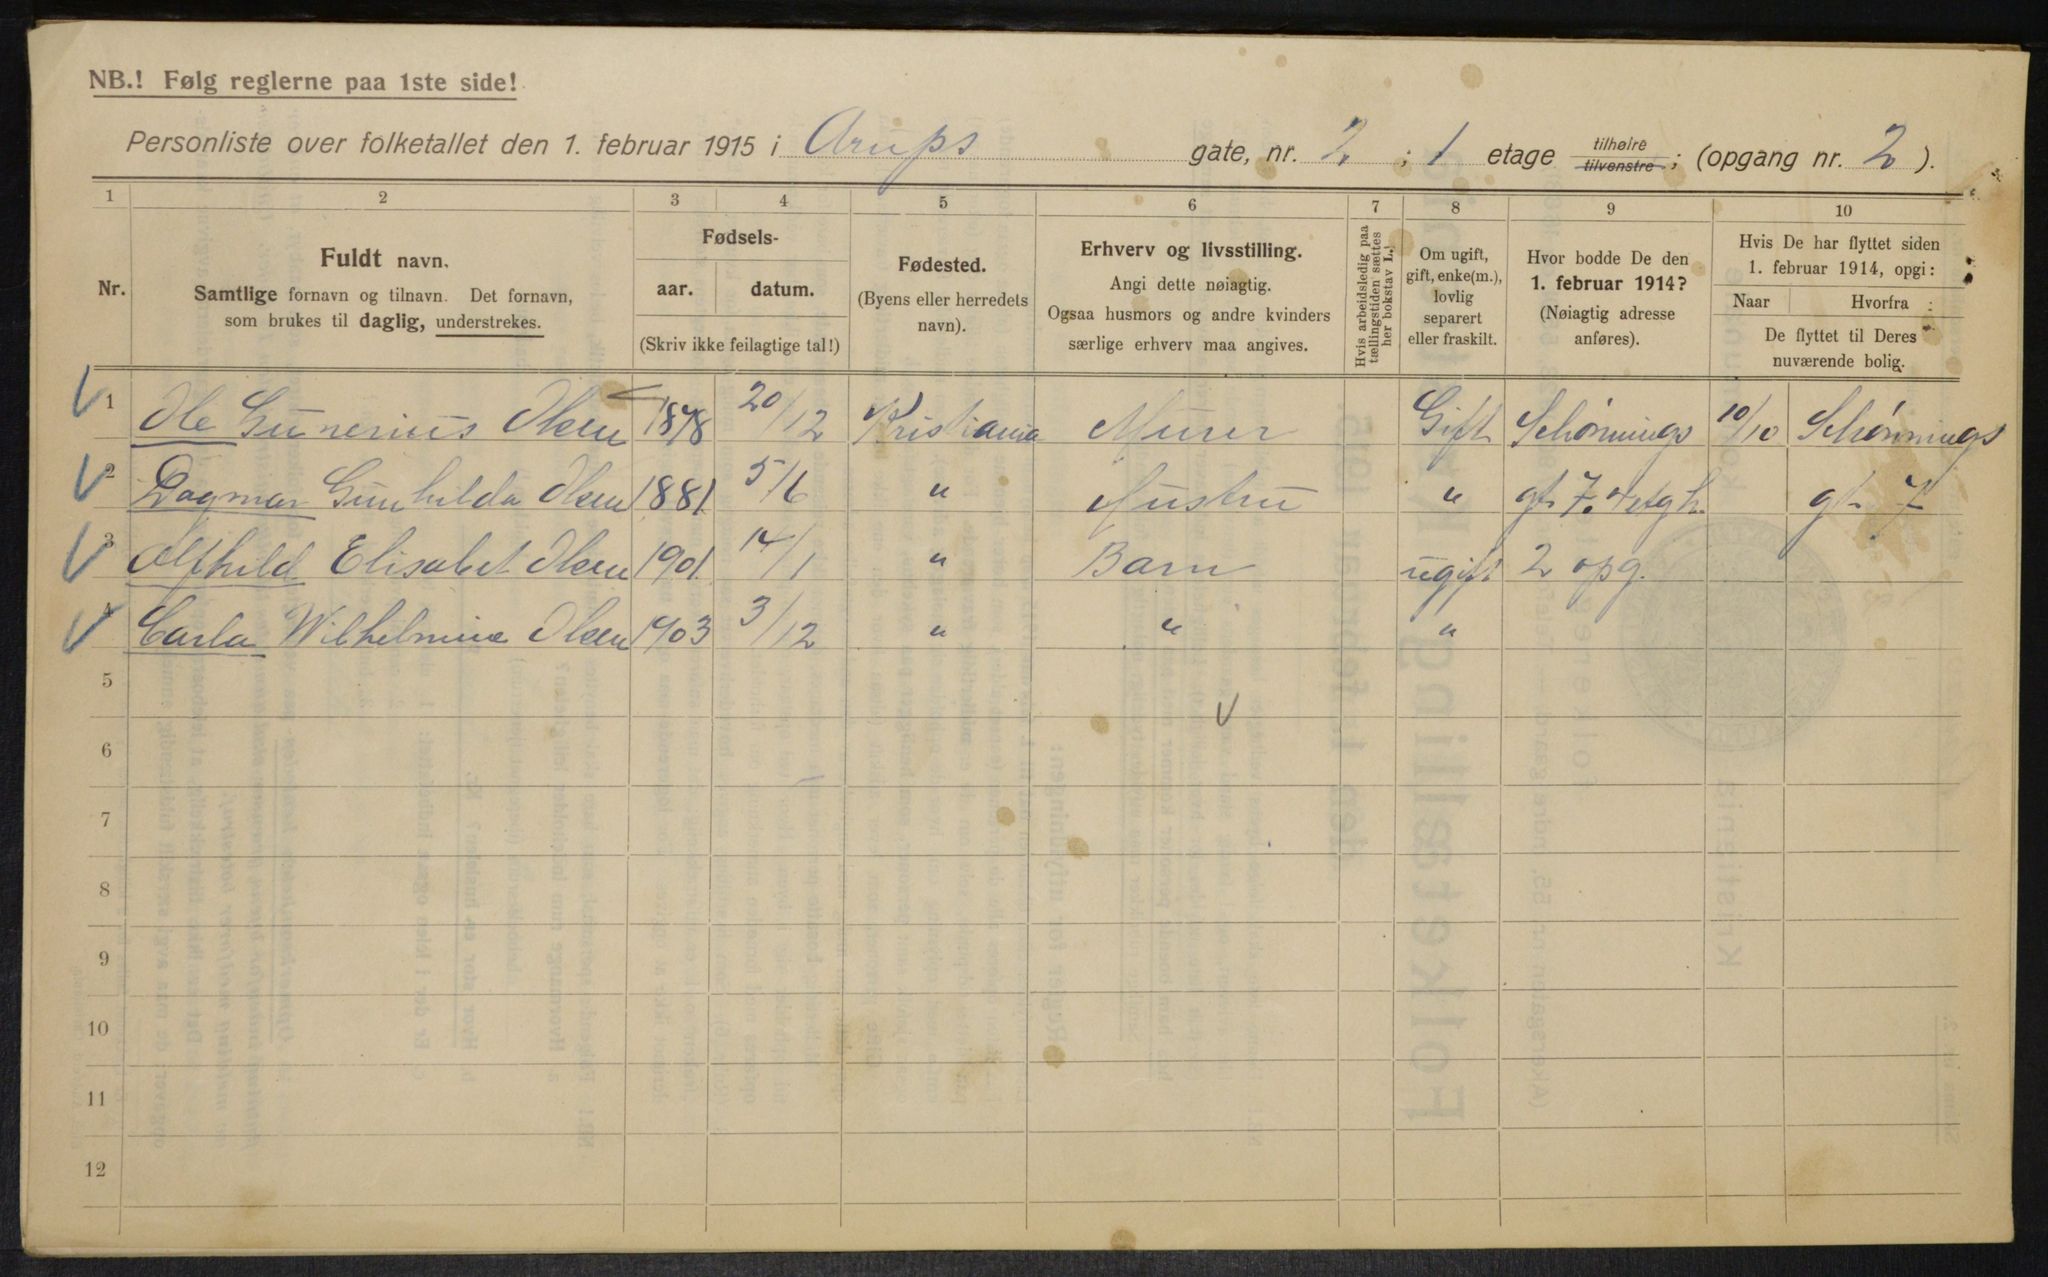 NB.! Følg reglerne paa 1ste side!
Personliste over folketallet den 1. februar 1915 i Arups gate, nr. 2 ; 1 etage tilhøire tilvenstre ; (opgang nr. 2 ).
1 2 3 4 5 6 7 8 9 10
Nr.
Fuldt navn.
Samtlige fornavn og tilnavn. Det fornavn,
som brukes til daglig, understrekes.
Fødsels-
aar. datum.
(Skriv ikke feilagtige tal!)
Fødested.
(Byens eller herredets
navn).
Erhverv og livsstilling.
Angi dette nøiagtig.
Ogsaa husmors og andre kvinders
særlige erhverv maa angives.
Hvis arbeidsledig paa
tællingstiden sættes
her bokstav L.
Om ugift,
gift, enke(m.),
lovlig
separert
eller fraskilt.
Hvor bodde De den
1. februar 1914?
(Nøiagtig adresse
anføres).
Hvis De har flyttet siden
1. februar 1914, opgi:
Naar Hvorfra
De flyttet til Deres
nuværende bolig.
1 Ole Gunerius Olsen 1878 20/12 Kristiania Murer Gift Schønnings 10/10 Schønnings
2 Dagmar Gunhilda Olsen 1881 5/6 " Hustru " gt 7. 4 etg h. gt 7
3 Alfhild Elisabet Olsen 1901 14/1 " Barn ugift 2 opg.
4 Carla Wilhelmine Olsen 1903 3/12 " " "
5
6
7
8
9
10
11
12